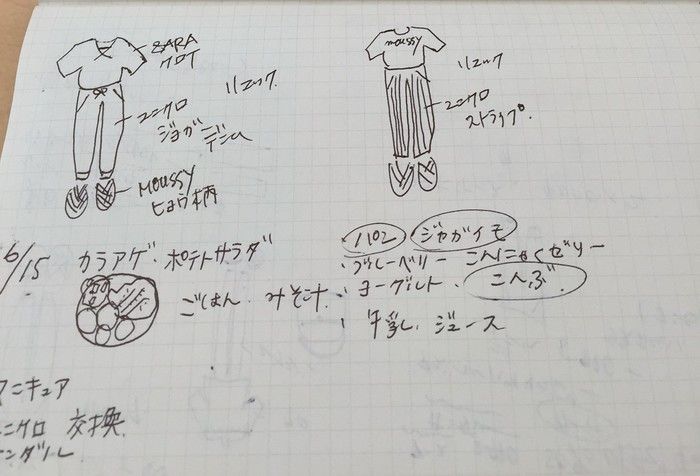 ZARA
クロT
リュック
ユニクロ
ジョガーデニム
MOUSSY
ヒョウ柄
moussy
リュック
ユニクロ
ストライプ
6/15 カラアゲ・ポテトサラダ
ごはん みそ汁
ジャガイモ
・ブルーベリー こんにゃくゼリー
・ヨーグルト・ こんぶ
・牛乳 ジュース
マニキュア
ユニクロ 交換
サンダル